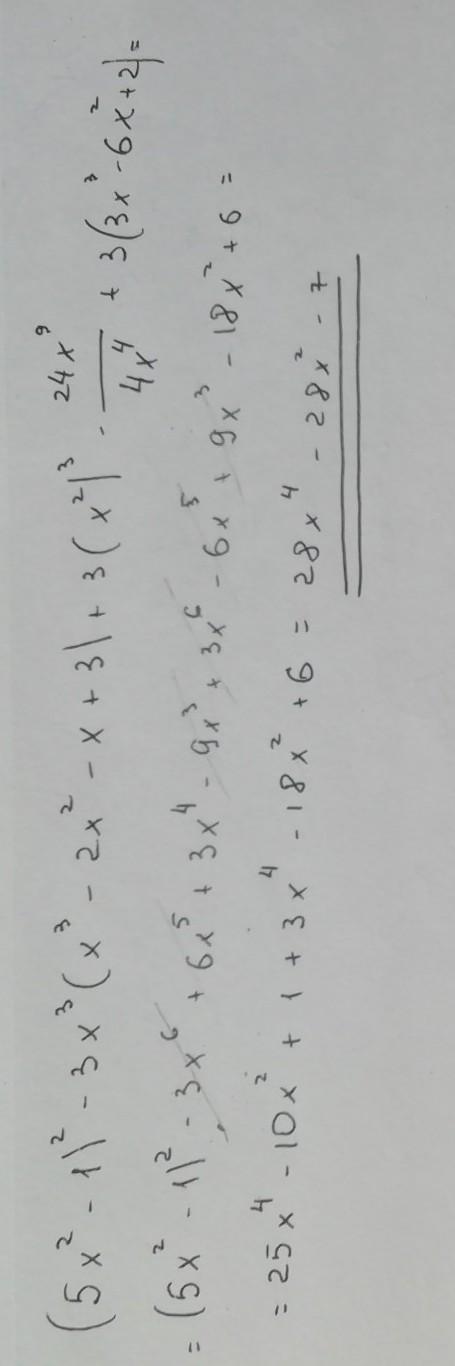 (5x² - 1)² - 3x³(x³ - 2x² - x + 3) + 3(x²)³ - 24x⁹/4x⁴ + 3(3x³ - 6x² + 2) =
= (5x² - 1)² - 3x⁶ + 6x⁵ + 3x⁴ - 9x³ + 3x⁶ - 6x⁵ + 9x³ - 18x² + 6 =
= 25x⁴ - 10x² + 1 + 3x⁴ - 18x² + 6 = 28x⁴ - 28x² - 7